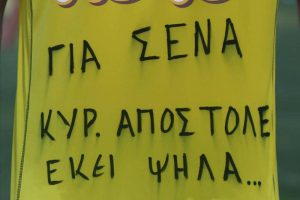 ΓΙΑ ΣΕΝΑ
ΚΥΡ. ΑΠΟΣΤΟΛΕ
ΕΚΕΙ ΨΗΛΑ...